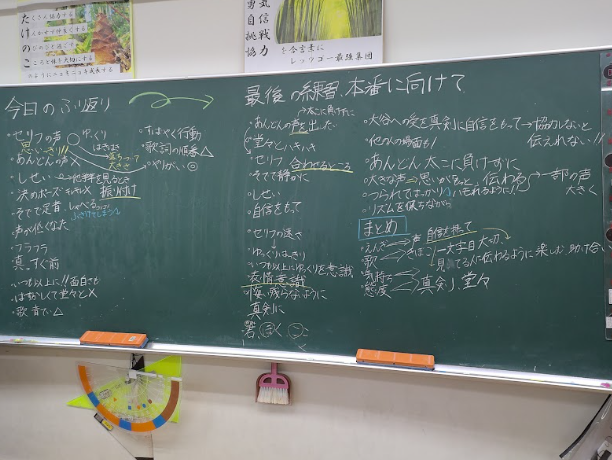 たくさん協力する
勇気
自信
挑戦
協力
を合言葉に
レッツゴー最強集団
今日のふり返り
・セリフの声
ゆっくり
思いっきり!!
はきはき
・あんどんの声×
・しせい
・決めポーズ
振り付け
・そでで足音
・声が低くなた
・フラフラ
・真っすぐ前
・いつも以上に!!面白でも
はずかしくて堂々と×
・歌 音てい△
・すばやく行動
・歌詞の順番△
・やりがい◎
最後の練習、本番に向けて
・あんどんの声を出したい
・堂々といきいき
・セリフ 合わせるところ
・そで静かに
・しせい
・自信をもって
・セリフの速さ
ゆっくりはっきり
・いつも以上にゆっくりを意識
・表情意識
・悔い残らないように
・真剣に
・大谷への愛を真剣に自信をもって→協力しないと
伝えれない!!
・他の人の場面も!
・あんどん太こに負けずに
・大きな声→思いがもっと伝わる→一部の声
大きく
・リズムを保ちながら
まとめ
自信を持って
声
一文字目大切、
歌
見てる人に伝わるように楽しむ、助け合い
気持ち
態度
真剣、堂々